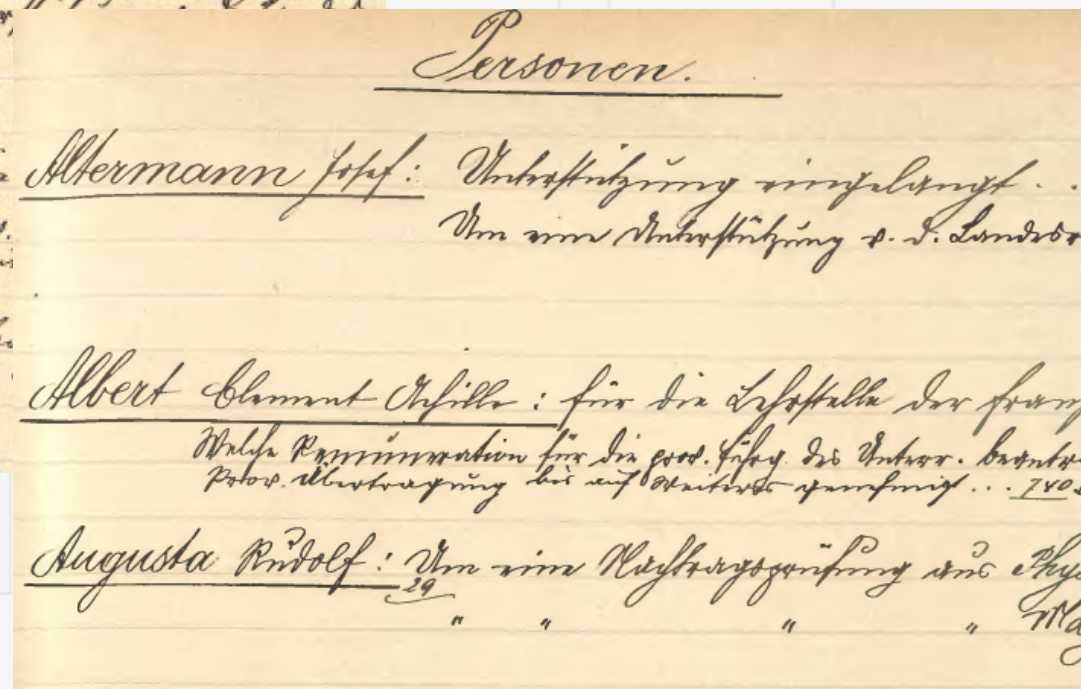 Personen.
Altermann Josef: Unterstützung eingelangt. .
Um eine Unterstützung v. d. Landesr
Albert Clement Achille: für die Lehrstelle der franz
Welche Remuneration für die prov. Führg. des Unterr. beantr
Prov. Übertragung bis auf Weiteres genehmigt ...
Augusta Rudolf: Um eine Nachtragsprüfung aus Phys
29
" " " " Ma